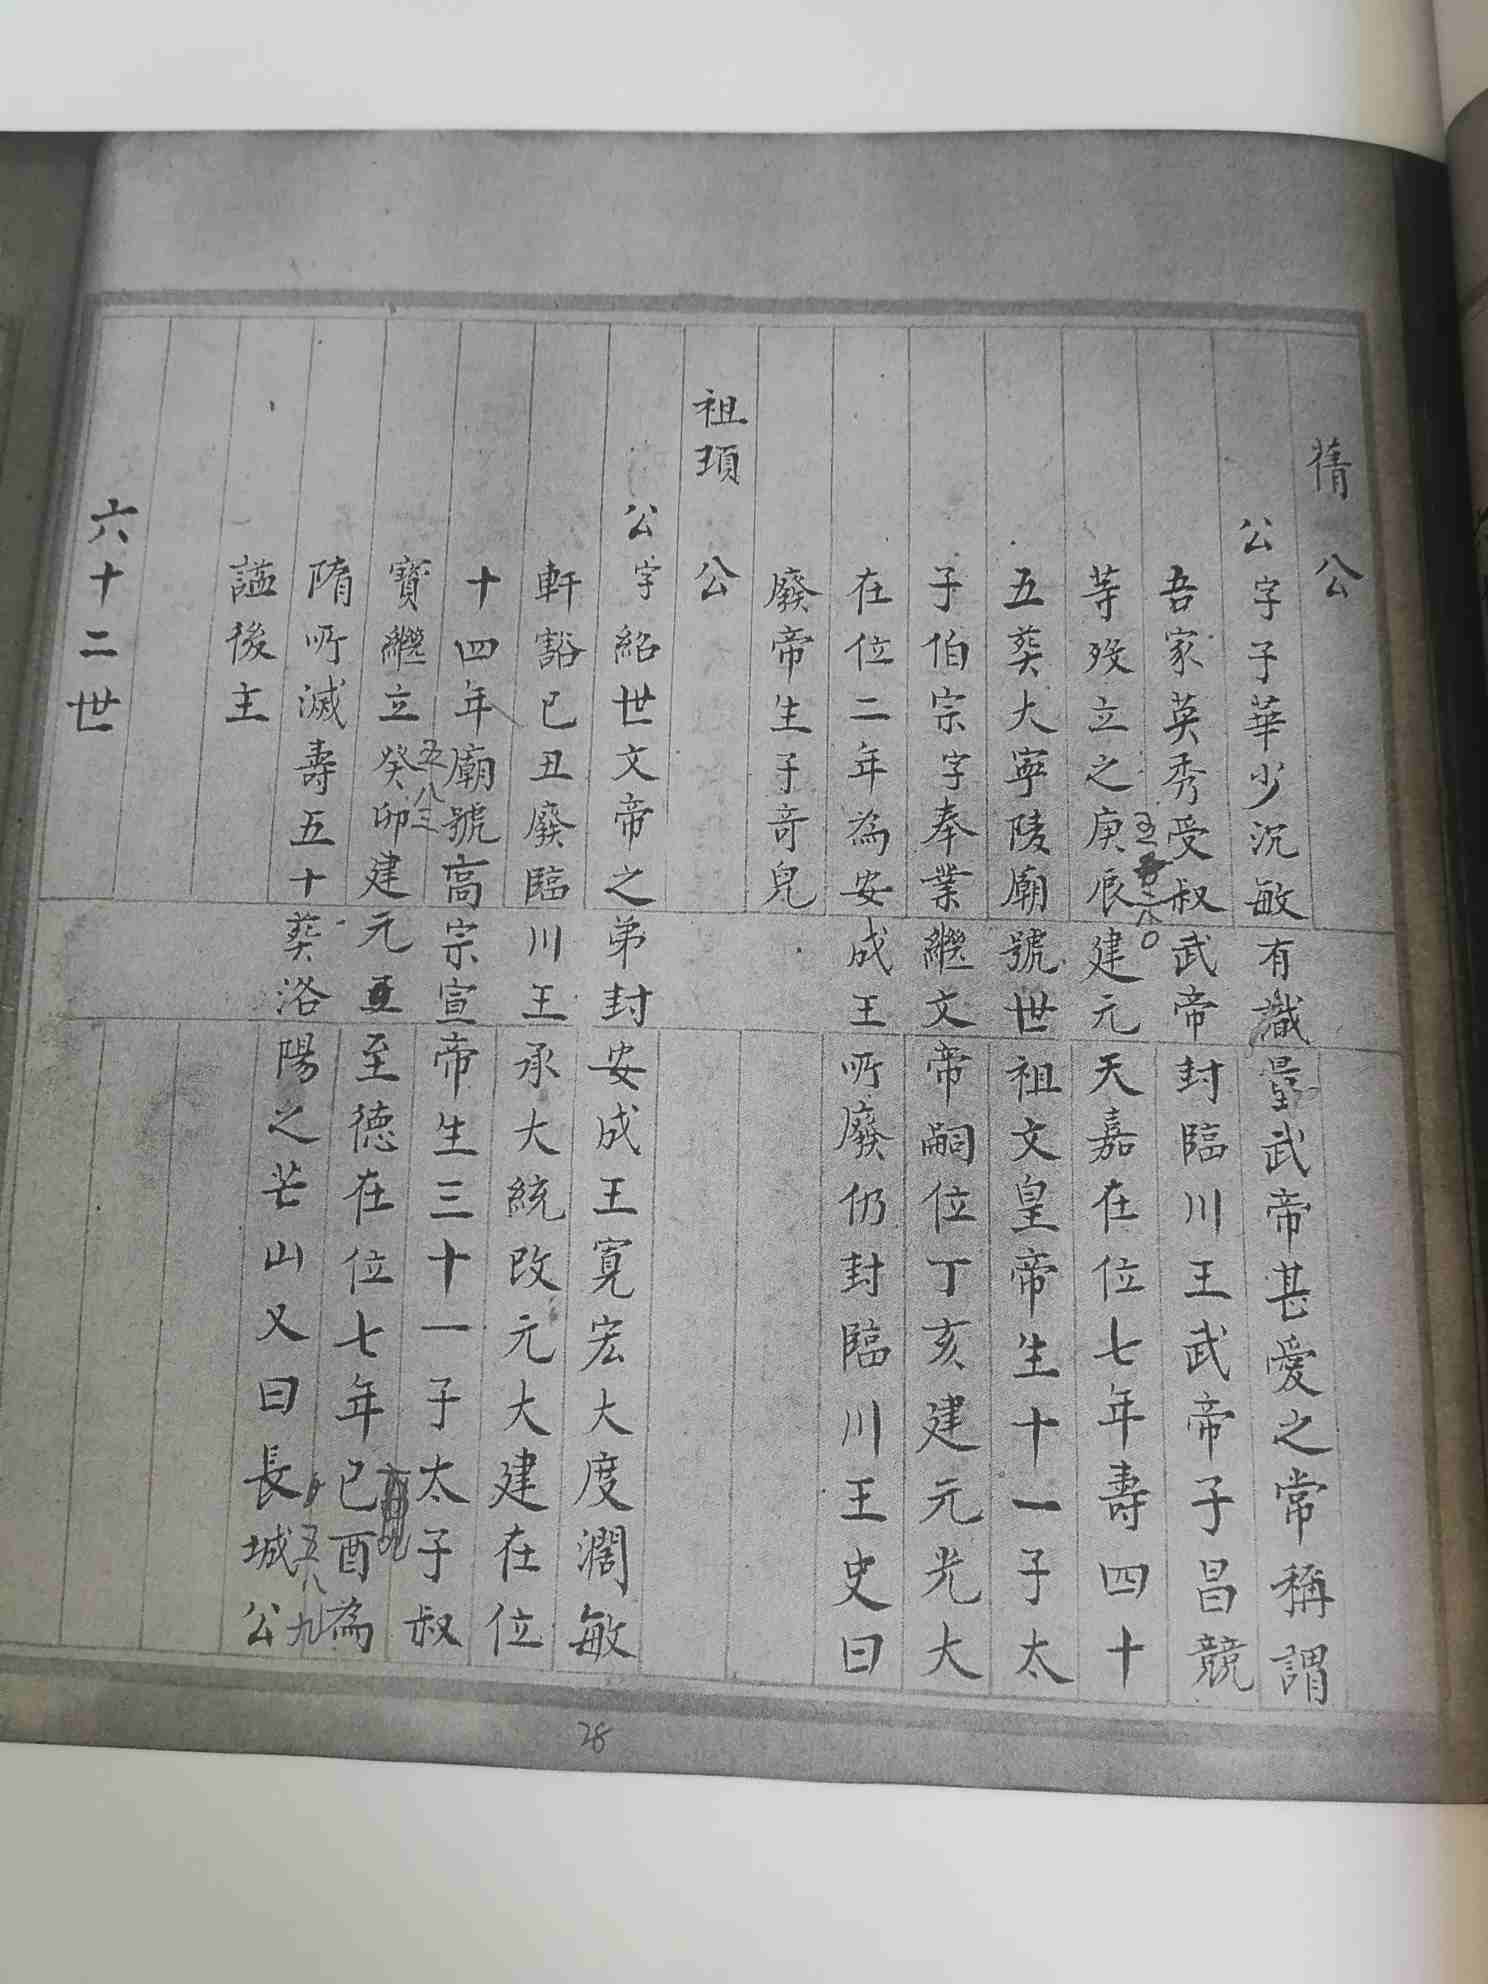 蒨公
公字子華少沉敏有識量武帝甚愛之常稱謂
吾家英秀受叔武帝封臨川王武帝子昌競
等歿立之庚辰建元天嘉在位七年壽四十
五葬大寧陵廟號世祖文皇帝生十一子太
子伯宗字奉業繼文帝嗣位丁亥建元光大
在位二年為安成王所廢仍封臨川王史曰
廢帝生子竒兒
祖頊公
公字紹世文帝之弟封安成王寬宏大度濶敏
軒豁已丑廢臨川王承大統改元大建在位
十四年廟號高宗宣帝生三十一子太子叔
五八三
寶繼立癸卯建元至德在位七年已酉為
五八九
隋所滅壽五十葬洛陽之芒山又曰長城公
謚後主
六十二世
28